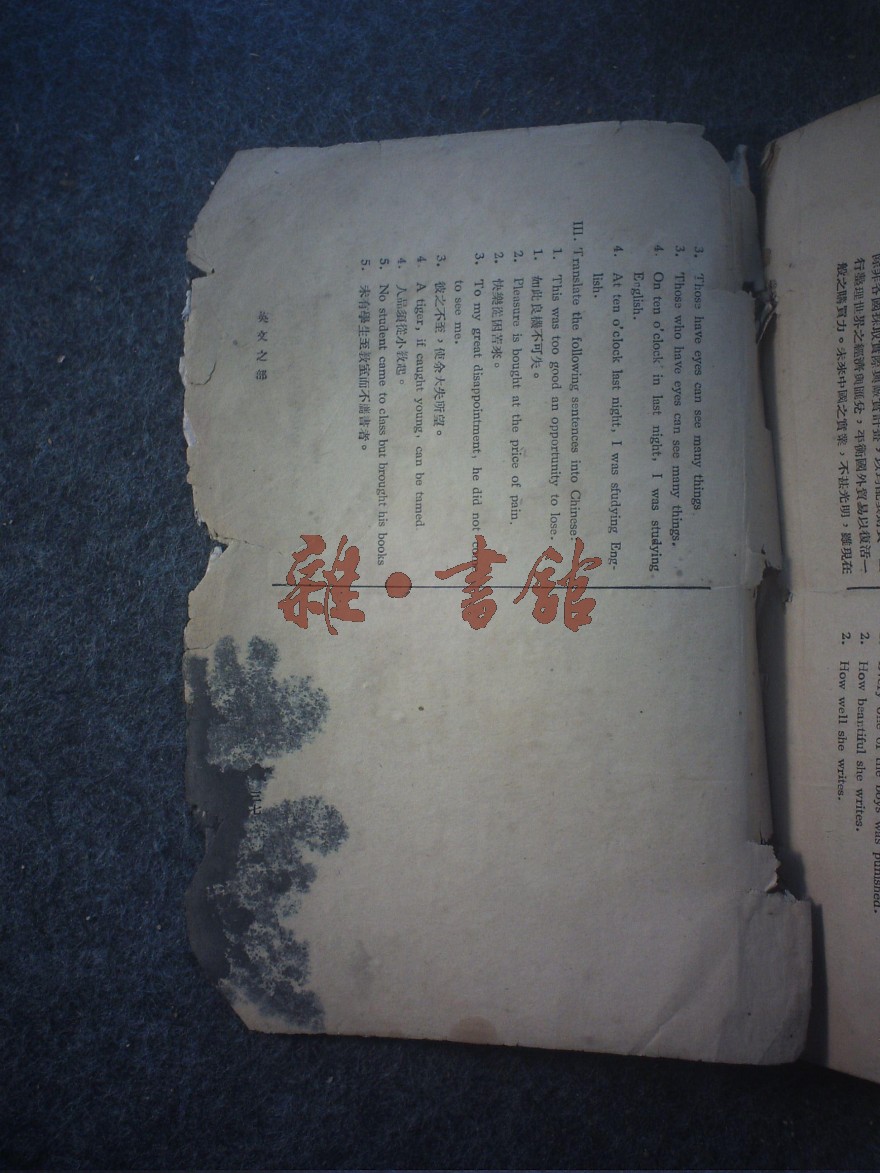 3. Those have eyes can see many things
3. Those who have eyes can see many things.
4. On ten o'clock in last night, I was studying
English.
4. At ten o'clock last night, I was studying Eng-
lish.
III. Translate the following sentences into Chinese:
1. This was too good an opportunity to lose.
1. 如此良機不可失。
2. Pleasure is bought at the price of pain.
2. 快樂從困苦來。
3. To my great disappointment, he did not
to see me.
3. 彼之不至,使余大失所望。
4. A tiger, if caught young, can be tamed
4. 人品須從小敎起。
5. No student came to class but brought his books
5. 未有學生至敎室而不攜書者。
三七
雜·書館
行整理世界之經濟與匯兌,平衡國外貿易以復活一
般之購買力。未來中國之實業,不甚光明,雖現在
one of the boys was punished.
2. How beautiful she writes.
2. How well she writes.